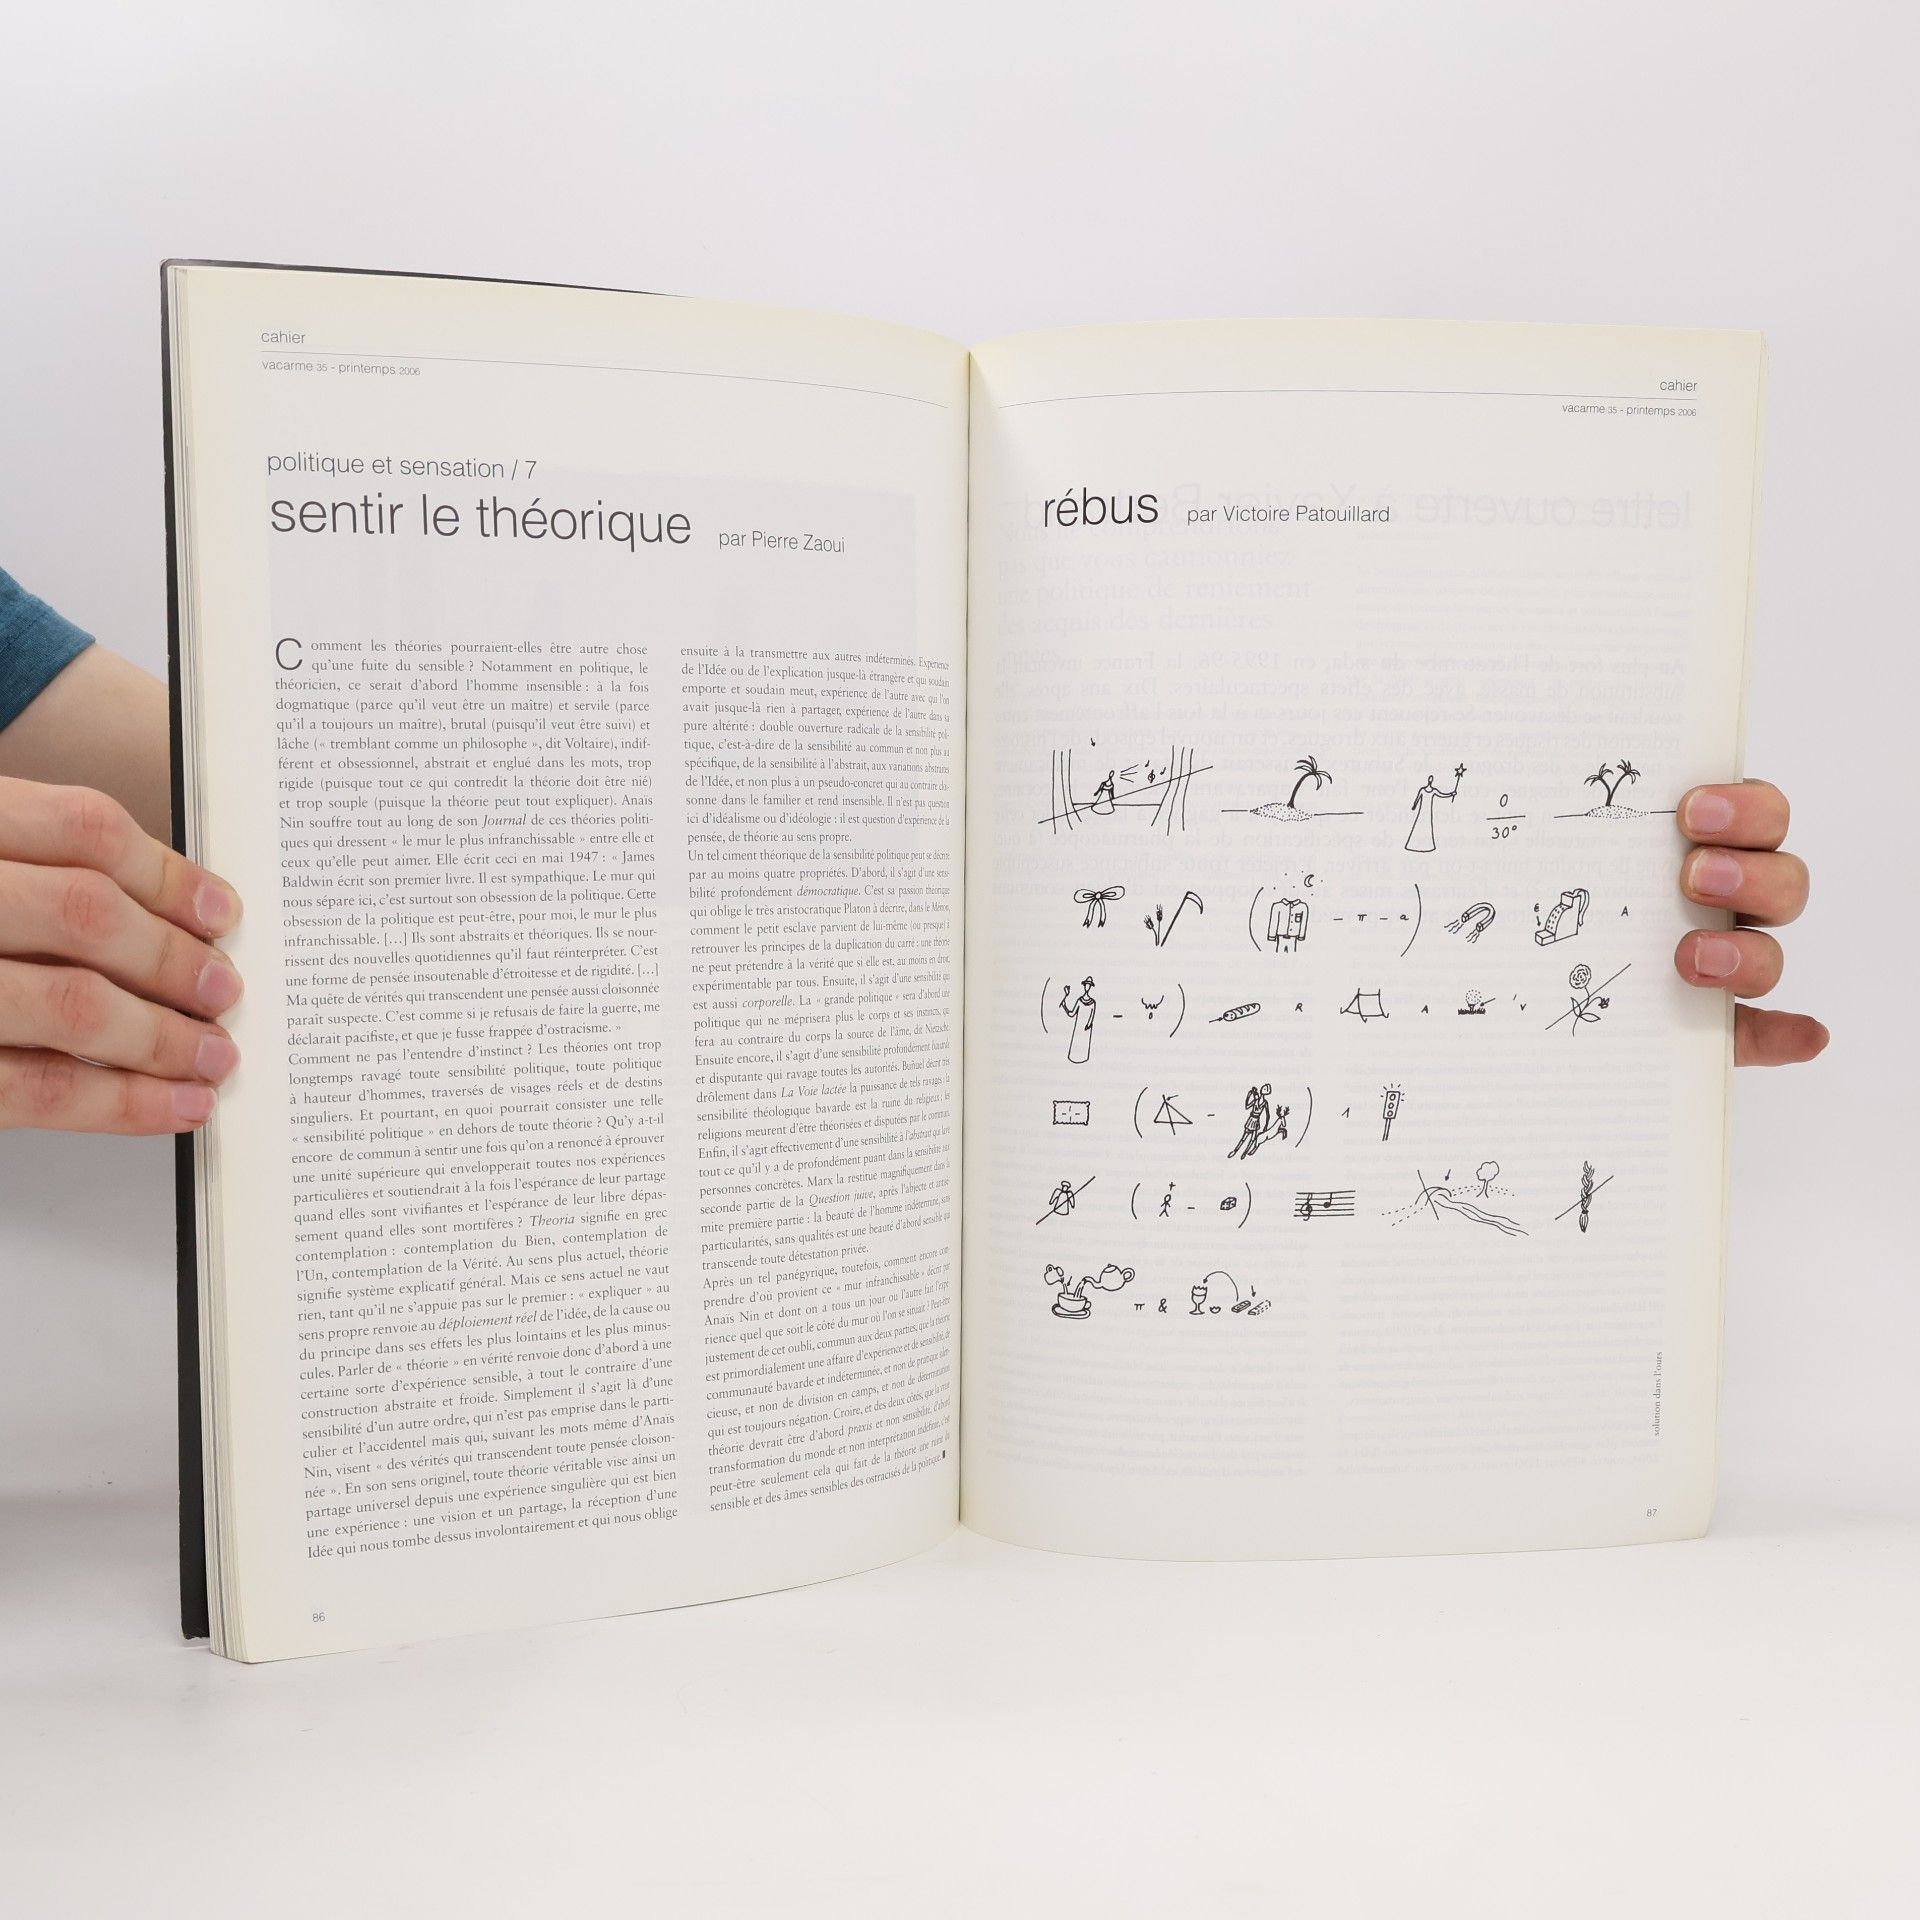 cahier
vacarme 35 - printemps 2006
politique et sensation / 7
sentir le théorique par Pierre Zaoui
Comment les théories pourraient-elles être autre chose
qu'une fuite du sensible ? Notamment en politique, le
théoricien, ce serait d'abord l'homme insensible : à la fois
dogmatique (parce qu'il veut être un maître) et servile (parce
qu'il a toujours un maître), brutal (puisqu'il veut être suivi) et
lâche (« tremblant comme un philosophe », dit Voltaire), indif-
férent et obsessionnel, abstrait et englué dans les mots, trop
rigide (puisque tout ce qui contredit la théorie doit être nié)
et trop souple (puisque la théorie peut tout expliquer). Anaïs
Nin souffre tout au long de son Journal de ces théories politi-
ques qui dressent « le mur le plus infranchissable » entre elle et
ceux qu'elle peut aimer. Elle écrit ceci en mai 1947 : « James
Baldwin écrit son premier livre. Il est sympathique. Le mur qui
nous sépare ici, c'est surtout son obsession de la politique. Cette
obsession de la politique est peut-être, pour moi, le mur le plus
infranchissable. [...] Ils sont abstraits et théoriques. Ils se nour-
rissent des nouvelles quotidiennes qu'il faut réinterpréter. C'est
une forme de pensée insoutenable d'étroitesse et de rigidité. [...]
Ma quête de vérités qui transcendent une pensée aussi cloisonnée
paraît suspecte. C'est comme si je refusais de faire la guerre, me
déclarait pacifiste, et que je fusse frappée d'ostracisme. »
Comment ne pas l'entendre d'instinct ? Les théories ont trop
longtemps ravagé toute sensibilité politique, toute politique
à hauteur d'hommes, traversés de visages réels et de destins
singuliers. Et pourtant, en quoi pourrait consister une telle
« sensibilité politique » en dehors de toute théorie ? Qu'y a-t-il
encore de commun à sentir une fois qu'on a renoncé à éprouver
une unité supérieure qui envelopperait toutes nos expériences
particulières et soutiendrait à la fois l'espérance de leur partage
quand elles sont vivifiantes et l'espérance de leur libre dépas-
sement quand elles sont mortifères ? Theoria signifie en grec
contemplation : contemplation du Bien, contemplation de
l'Un, contemplation de la Vérité. Au sens plus actuel, théorie
signifie système explicatif général. Mais ce sens actuel ne vaut
rien, tant qu'il ne s'appuie pas sur le premier : « expliquer » au
sens propre renvoie au déploiement réel de l'idée, de la cause ou
du principe dans ses effets les plus lointains et les plus minus-
cules. Parler de « théorie » en vérité renvoie donc d'abord à une
certaine sorte d'expérience sensible, à tout le contraire d'une
construction abstraite et froide. Simplement il s'agit là d'une
sensibilité d'un autre ordre, qui n'est pas emprise dans le parti-
culier et l'accidentel mais qui, suivant les mots même d'Anaïs
Nin, visent « des vérités qui transcendent toute pensée cloison-
née ». En son sens originel, toute théorie véritable vise ainsi un
partage universel depuis une expérience singulière qui est bien
une expérience : une vision et un partage, la réception d'une
Idée qui nous tombe dessus involontairement et qui nous oblige
ensuite à la transmettre aux autres indéterminés. Expérience
de l'Idée ou de l'explication jusque-là étrangère et qui soudain
emporte et soudain meut, expérience de l'autre avec qui l'on
avait jusque-là rien à partager, expérience de l'autre dans sa
pure altérité : double ouverture radicale de la sensibilité poli-
tique, c'est-à-dire de la sensibilité au commun et non plus au
spécifique, de la sensibilité à l'abstrait, aux variations abstraites
de l'Idée, et non plus à un pseudo-concret qui au contraire
sonne dans le familier et rend insensible. Il n'est pas question
ici d'idéalisme ou d'idéologie : il est question d'expérience de la
pensée, de théorie au sens propre.
Un tel ciment théorique de la sensibilité politique peut se décrire
par au moins quatre propriétés. D'abord, il s'agit d'une sensi-
bilité profondément démocratique. C'est sa passion théorique
qui oblige le très aristocratique Platon à décrire, dans le Ménon,
comment le petit esclave parvient de lui-même (ou presque) à
retrouver les principes de la duplication du carré : une théorie
ne peut prétendre à la vérité que si elle est, au moins en droit,
expérimentable par tous. Ensuite, il s'agit d'une sensibilité qui
est aussi corporelle. La « grande politique » sera d'abord une
politique qui ne méprisera plus le corps et ses instincts, qui
fera au contraire du corps la source de l'âme, dit Nietzsche.
Ensuite encore, il s'agit d'une sensibilité profondément bavarde
et disputante qui ravage toutes les autorités. Buñuel décrit très
drôlement dans La Voie lactée la puissance de tels ravages : la
sensibilité théologique bavarde est la ruine du religieux ; les
religions meurent d'être théorisées et disputées par le commun.
Enfin, il s'agit effectivement d'une sensibilité à l'abstrait qui lave
tout ce qu'il y a de profondément puant dans la sensibilité aux
personnes concrètes. Marx la restitue magnifiquement dans la
seconde partie de la Question juive, après l'abjecte et antisé-
mite première partie : la beauté de l'homme indéterminé, sans
particularités, sans qualités est une beauté d'abord sensible qui
transcende toute détestation privée.
Après un tel panégyrique, toutefois, comment encore com-
prendre d'où provient ce « mur infranchissable » décrit par
Anaïs Nin et dont on a tous un jour ou l'autre fait l'expé-
rience quel que soit le côté du mur où l'on se situait ? Peut-être
justement de cet oubli, commun aux deux parties, que la théorie
est primordialement une affaire d'expérience et de sensibilité, de
communauté bavarde et indéterminée, et non de pratique silen-
cieuse, et non de division en camps, et non de détermination
qui est toujours négation. Croire, et des deux côtés, que la
théorie devrait être d'abord praxis et non sensibilité, d'abord
transformation du monde et non interprétation indéfinie, c'est
peut-être seulement cela qui fait de la théorie une ruine du
sensible et des âmes sensibles des ostracisés de la politique.
86
cahier
vacarme 35 - printemps 2006
rébus par Victoire Patouillard
0
30°
- π - a
A
R A 'V
1
π &
solution dans l'ours
87